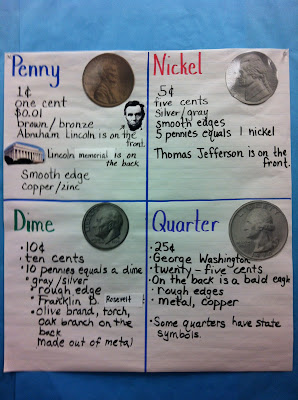 Penny
1¢
one cent
$0.01
brown/bronze
Abraham Lincoln is on the
front.
Lincoln memorial is on
the back
Smooth edge
copper/zinc
Nickel
5¢
five cents
silver/gray
smooth edges
5 pennies equals 1 nickel
Thomas Jefferson is on the
front.
Dime
•10¢
•ten cents
•10 pennies equals a dime
•gray/silver
•rough edge
•Franklin D. Roosevelt
•olive brand, torch,
oak branch on the
back
made out of metal
Quarter
•25¢
•George Washington
•twenty-five cents
•On the back is a bald eagle
•rough edges
•metal, copper
•Some quarters have state
symbols.